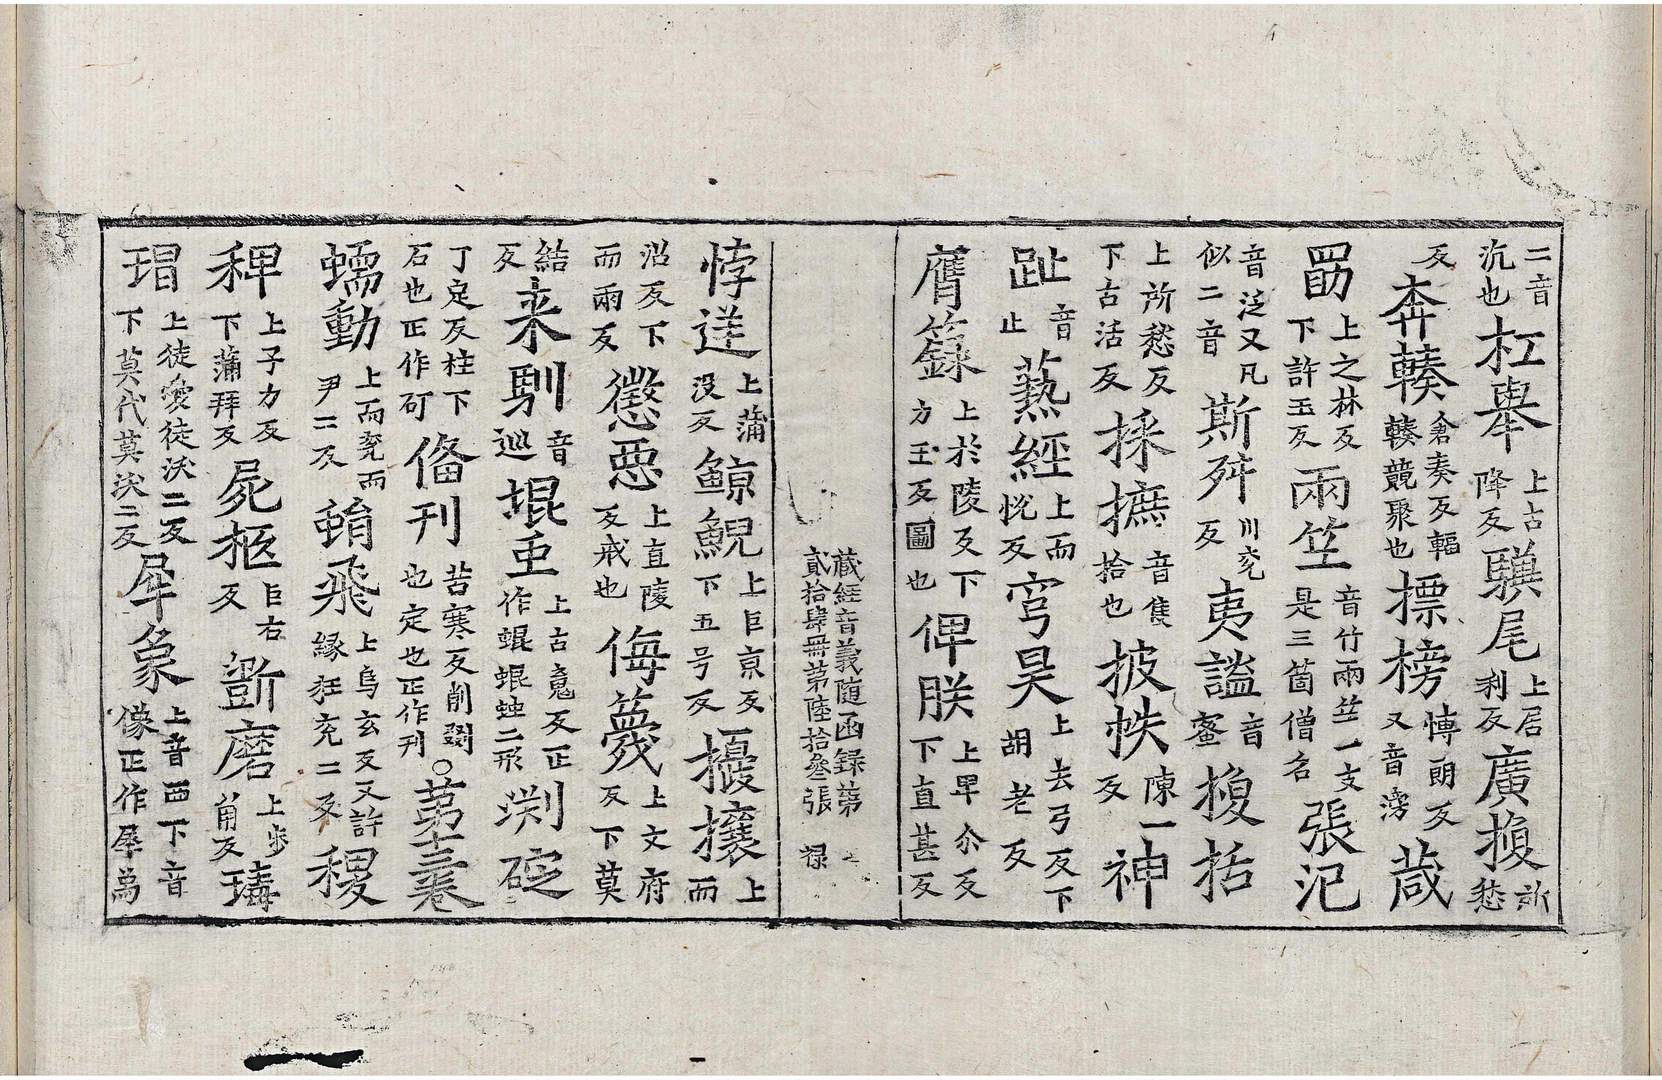 二音沉也杠舉上古降反驥尾上居利反廣搜所愁
反奔輳倉奏反輻輳競聚也摽榜慱朗反又音滂葴
勗上之林反下許玉反兩笁音竹兩笁一支是三箇僧名張汜
音泛又凡似二音斯舛川兖反夷謐音蜜搜括
上所愁反下古活反採摭音隻拾也披帙陳一反神
趾音止爇經上而悅反穹昊上去弓反下胡老反
膺籙上於陵反下方玉反圖也俾朕上卑尒反下直甚反
藏經音義随函録第貳拾肆冊第陸拾叄張 禄
悖逆上蒲没反鯨鯢上巨京反下五号反擾攘上而
沼反下而兩反懲惡上直陵反戒也侮蔑上文府反下莫
結反来馴音巡混䖝上古䰟反正作蜫蜫䖝二形渕碇
丁定反柱下石也正作矴俻刊苦寒反削𠜾也定也正作刋○第十三卷
蠕動上而兖而尹二反蜎飛上烏玄反又許緣狂兖二反稷
稗上子力反下蒲拜反屍柩巨右反斵磨上步角反瑇
瑁上徒愛徒沃二反下莫代莫沃二反犀象上音西下音像正作犀為